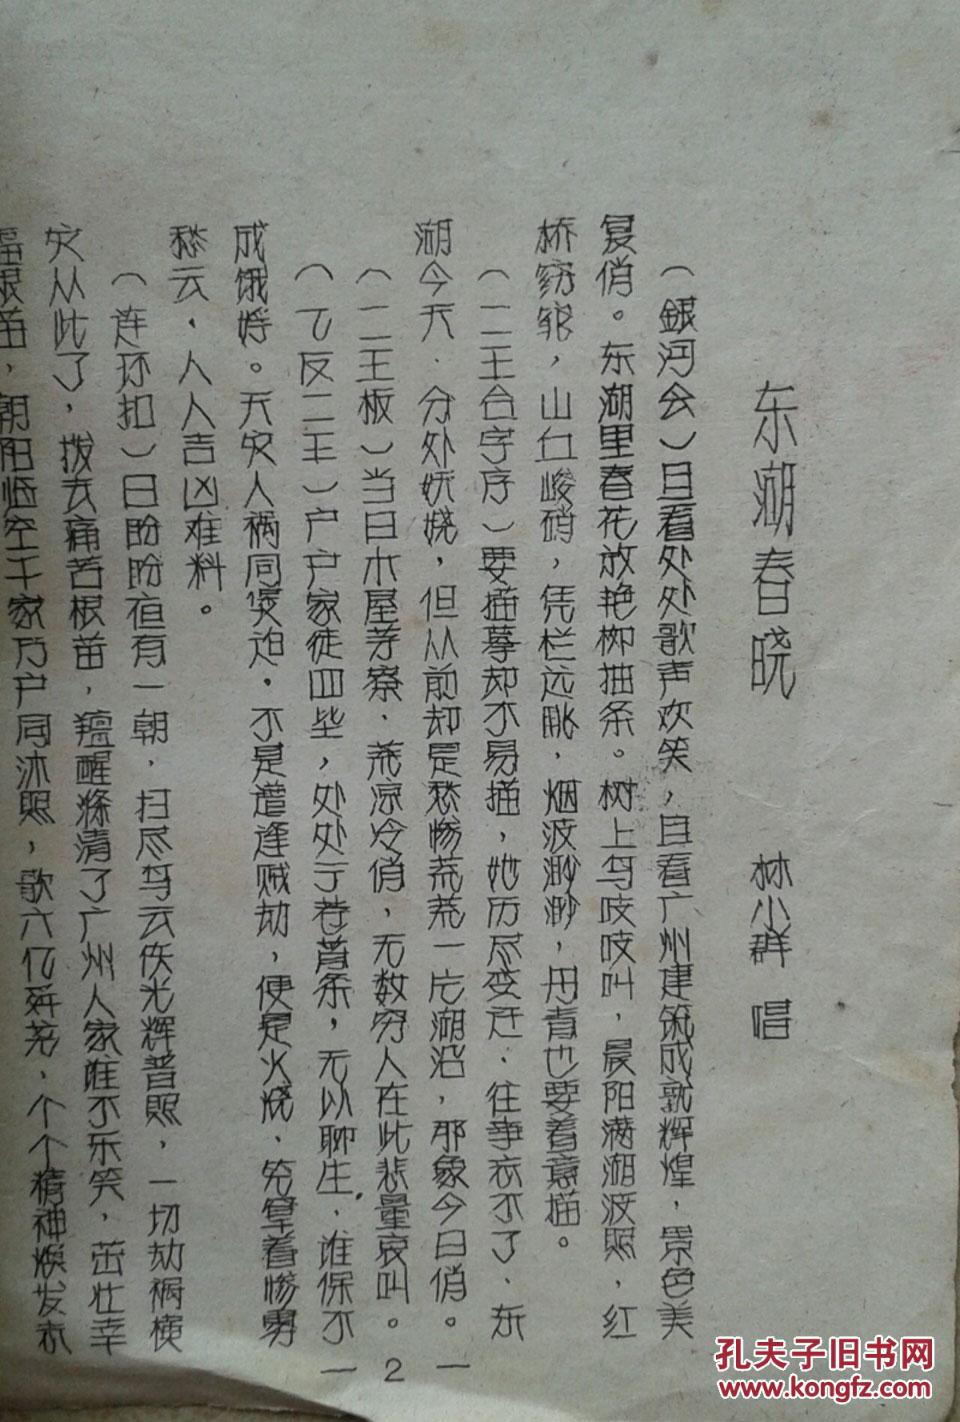 东湖春晓
林小群 唱
（銀河会）旦看处处歌声欢笑，目看广州建筑成就辉煌，景色美
复俏。东湖里春花放艳柳抽条。树上鸟吱吱叫，晨阳满湖波照，红
桥窈窕，山丘峻硝，凭栏远眺，烟波渺渺，丹青也要着意描。
（二王合字序）要描摹却不易描，她历尽变迁、往事衣不了、东
湖今天．分外妖娆，但从前却是愁惨荒荒一片湖沿，那象今日俏。
（二王板）当日木屋芽寮．荒凉冷俏，无数穷人在此悲量哀叫。
（乙反二王）户户家徒四壁，处处于苍首条，无以聊生．谁保不
成饿殍。天灾人祸同煲炮．不是遭逢贼劫，便是火烧．笼罩着惨雾
愁云．人人吉凶难料。
（连环扣）日盼盼宿有一朝．扫尽乌云佚光辉普照，一切劫祸横
灾从此了，拨去痛苦根苗，膻腥滌清了广州人家谁不乐笑，茁壮幸
福根苗，朝阳临空千家万户同沐照，歌六亿舜尧．个个精神焕发衣
— 2 —
孔夫子旧书网
www.kongfz.com